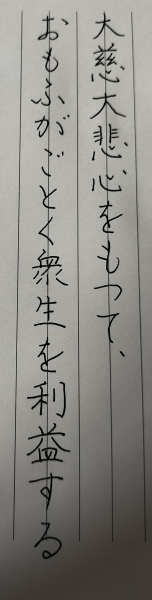 大慈大悲心をもつて、
おもふがごとく衆生を利益する